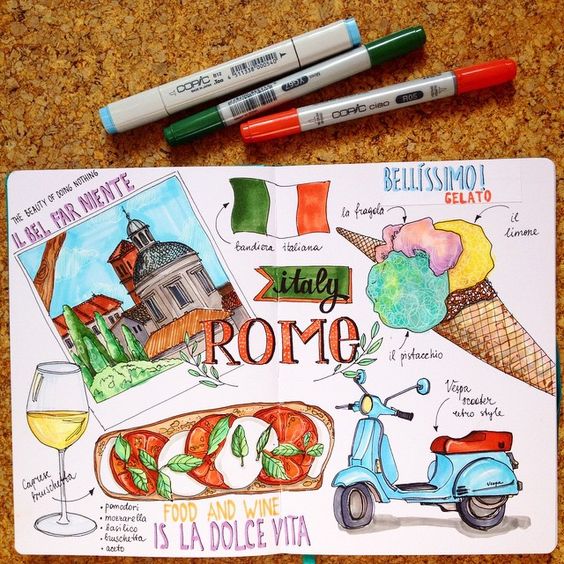 COPIC
COPIC
COPIC ciao
R05
THE BEAUTY OF DOING NOTHING
IL BEL FAR NIENTE
bandiera italiana
BELLÍSSIMO!
GELATO
la fragola
il
limone
il pistacchio
italy
ROME
Vespa
scooter
retro style
Vespa
Caprese
Bruschetta
• pomodori
• mozzarella
• basilico
• bruschetta
• aceto
FOOD AND WINE
IS LA DOLCE VITA